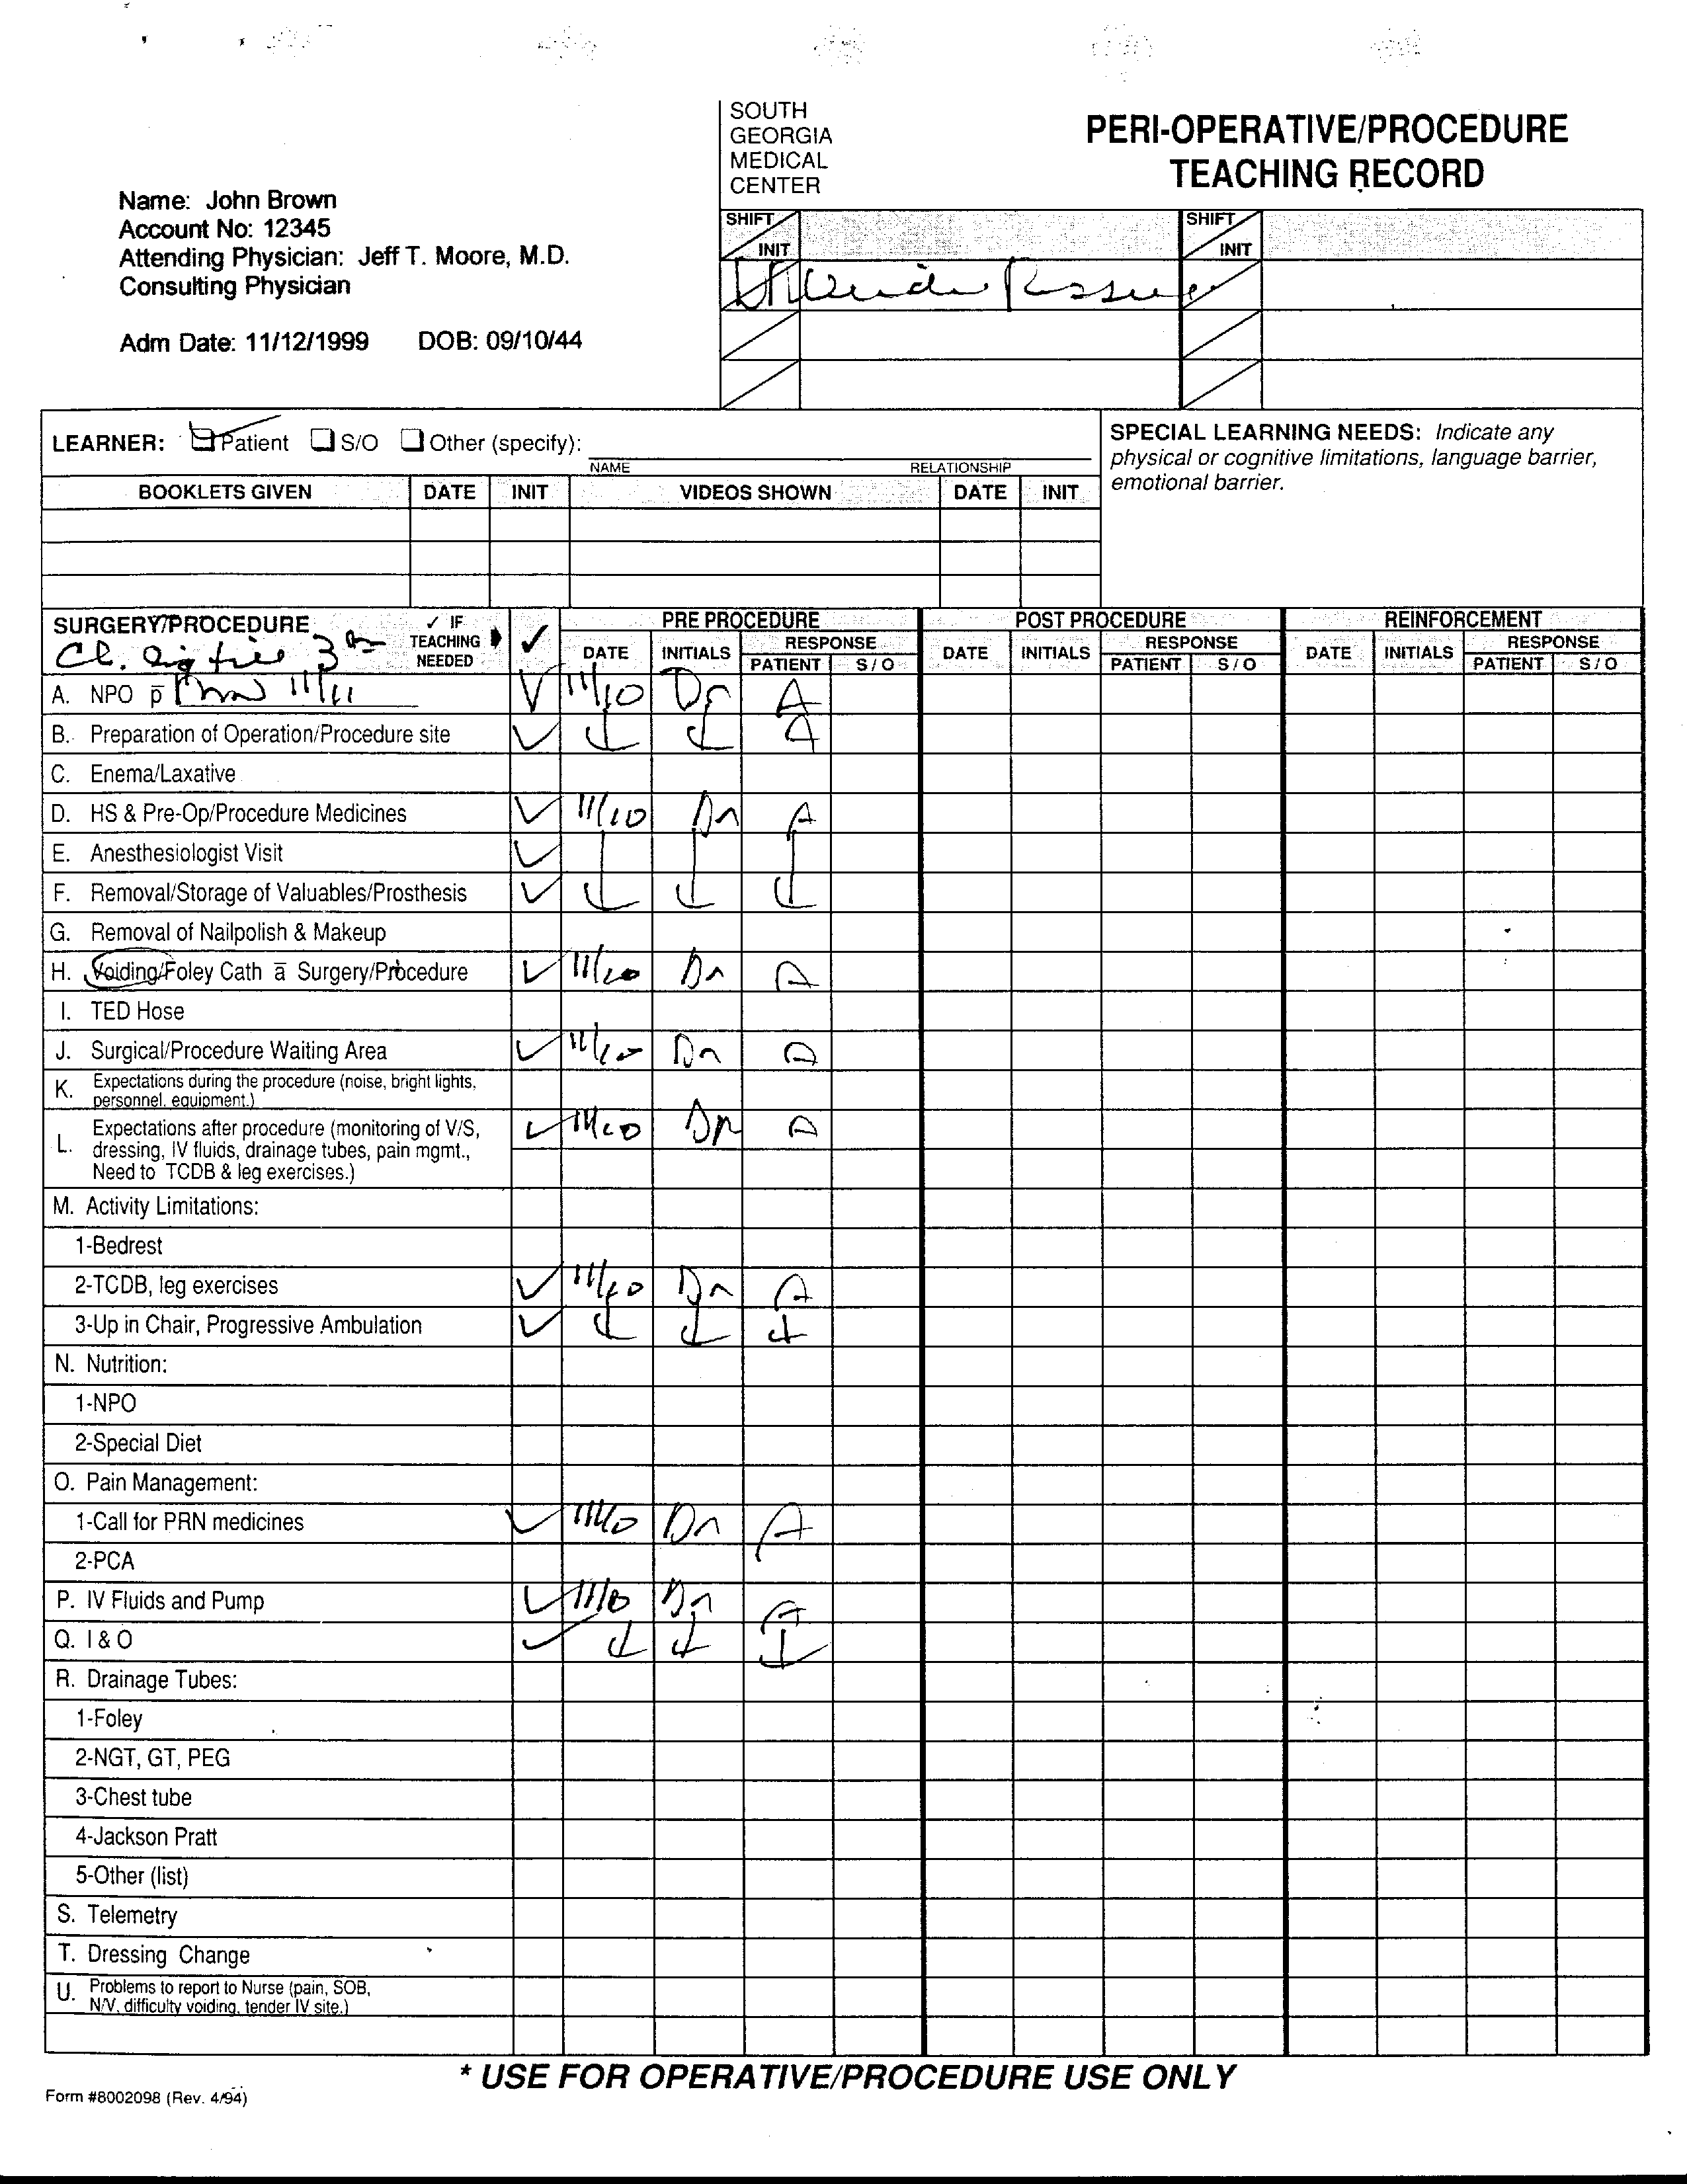 SOUTH
GEORGIA
MEDICAL
CENTER
PERI-OPERATIVE/PROCEDURE
TEACHING RECORD
Name: John Brown
Account No: 12345
Attending Physician: Jeff T. Moore, M.D.
Consulting Physician
Adm Date: 11/12/1999 DOB: 09/10/44
SHIFT INIT SHIFT INIT
LEARNER: Patient S/O Other (specify):
NAME RELATIONSHIP
SPECIAL LEARNING NEEDS: Indicate any
physical or cognitive limitations, language barrier,
emotional barrier.
BOOKLETS GIVEN DATE INIT VIDEOS SHOWN DATE INIT
SURGERY/PROCEDURE ✓ IF TEACHING NEEDED ✓ PRE PROCEDURE POST PROCEDURE REINFORCEMENT
DATE INITIALS RESPONSE DATE INITIALS RESPONSE DATE INITIALS RESPONSE
PATIENT S/O PATIENT S/O PATIENT S/O
A. NPO p̄ 11/11 ✓ 11/10 Dr A
B. Preparation of Operation/Procedure site ✓ ↓ ↓ A
C. Enema/Laxative
D. HS & Pre-Op/Procedure Medicines ✓ 11/10 Dr A
E. Anesthesiologist Visit ✓
F. Removal/Storage of Valuables/Prosthesis ✓ ↓ ↓ ↓
G. Removal of Nailpolish & Makeup
H. Voiding/Foley Cath ā Surgery/Procedure ✓ 11/10 Dr A
I. TED Hose
J. Surgical/Procedure Waiting Area ✓ 11/10 Dr A
K. Expectations during the procedure (noise, bright lights,
personnel, equipment.)
L. Expectations after procedure (monitoring of V/S, ✓ 11/10 Dr A
dressing, IV fluids, drainage tubes, pain mgmt.,
Need to TCDB & leg exercises.)
M. Activity Limitations:
1-Bedrest
2-TCDB, leg exercises ✓ 11/10 Dr A
3-Up in Chair, Progressive Ambulation ✓ ↓ ↓ ↓
N. Nutrition:
1-NPO
2-Special Diet
O. Pain Management:
1-Call for PRN medicines ✓ 11/10 Dr A
2-PCA
P. IV Fluids and Pump ✓ 11/10 Dr A
Q. I & O ✓ ↓ ↓ ↓
R. Drainage Tubes:
1-Foley
2-NGT, GT, PEG
3-Chest tube
4-Jackson Pratt
5-Other (list)
S. Telemetry
T. Dressing Change
U. Problems to report to Nurse (pain, SOB,
N/V, difficulty voiding, tender IV site.)
* USE FOR OPERATIVE/PROCEDURE USE ONLY
Form #8002098 (Rev. 4/94)